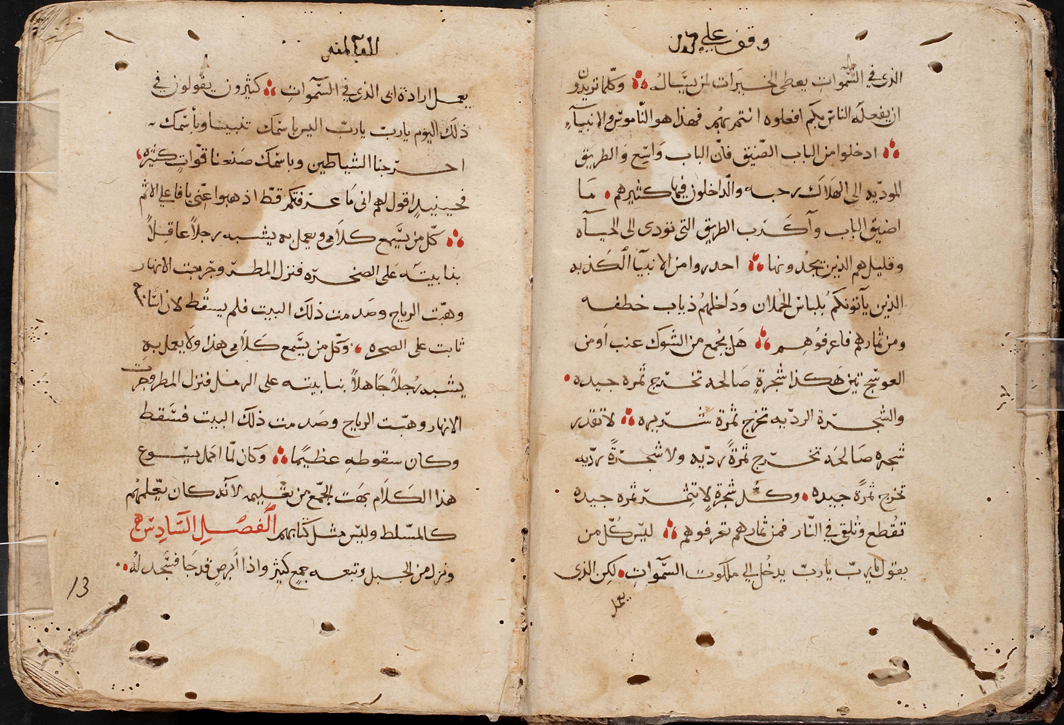 وقف علي
الذى فى السموات يعطى الخيرات لمن يساله وكلما تريدو
ان يفعله الناس بكم افعلوه انتم بهم فهذا هو الناموس والانبياء
ادخلوا من الباب الضيق فان الباب واسع والطريق
الموديه الى الهلاك رحبه والداخلون فيها كثيرهم ما
اضيق الباب وأكرب الطريق التى تودى الى الحياه
وقليل هم الذين يجدونها احدروا من الانبيا الكذبه
الذين يأتونكم بلباس الحملان وداخلهم ذياب خطفه
ومن ثمارهم فاعرفوهم هل يجمع من الشوك عنب او من
العوسج تين هكذا شجرة صالحه تخرج ثمره جيده
والشجرة الرديه تخرج ثمرة شريره لا تقدر
شجره صالحه تخرج ثمرة رديه ولا شجرة رديه
تخرج ثمرة جيده وكل شجرة لا تثمر ثمره جيده
تقطع وتلق فى النار فمن ثمارهم تعرفوهم ليس كل من
يقول يارب يارب يدخل الى ملكوت السموات لكن الذى
يعمل
يعمل ارادة ابى الذى فى السموات كثيرون يقولون فى
ذلك اليوم يارب يارب اليس باسمك تنبينا وباسمك
اخرجنا الشياطين وباسمك صنعنا قوات كثيره
فحينيد اقول لهم انى ما عرفتكم قط اذهبوا عنى يا فاعلى الاثم
كل من يسمع كلامى ويعمل به يشبه رجلا عاقلا
بنا بيته على الصخره فنزل المطر وجرت الانهار
وهبت الرياح وصدمت ذلك البيت فلم يسقط لان اساسه
ثابت على الصخره وكل من يسمع كلامى هذا ولا يعمل به
يشبه رجلا جاهلا بنا بيته على الرمل فنزل المطر وجرت
الانهار وهبت الرياح وصدمت ذلك البيت فسقط
وكان سقوطه عظيما وكان لما اكمل يسوع
هذا الكلام بهت الجمع من تعليمه لانه كان يعلمهم
كالمسلط وليس مثل كتابهم الفصل السادس
ونزل من الجبل وتبعه جمع كثير واذا ابرص قد جا فسجد له
13